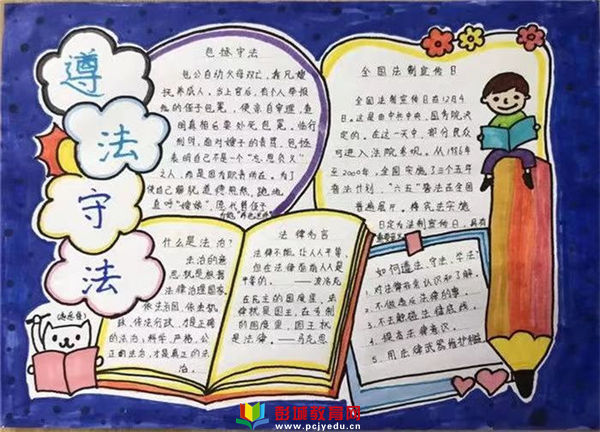 遵
法
守
法
包拯守法
包公自幼父母双亡,靠兄嫂
抚养成人,当上官后,有个人举报
他的侄子包冕,使亲自审理,查
明真相后要处死包冕。临行
刑时,面对嫂子的责骂,包拯
表明自己不是一个“忘恩负义”
之人,而是因为职责所在,为了
使自己
直呼“嫂娘”,愿代替侄子
为她“养老送终”
全国法制宣传日
全国法制宣传日在12月4
日。这是由中共中央、国务院决
定的。在这一天中,部分民众
可进入法院参观。从1986年
至2000年,全国实施了三个五年
普法计划,“六五”普法在全国
普遍展开。将宪法实施
日定为法制宣传日,具有
什么是法治?
法治的意
思就是根据
法律治理国家,
依法治国,依法执
政,依法行政,才是正确
的法治;科学、严格、公
正的法治,才是真正的法
治。
法律名言
法律不能使人人平等,
但在法律面前人人是
平等的。——波洛克
在民主的国度里,法
律就是国王;在专制
的国度里,国王就
是法律。——马克思
如何遵法、守法、学法?
1、对法律有些认识和了解。
2、不做违反法律的事。
3、不去触碰法律底线。
4、提高法律意识。
5、用法律武器维护权益
彭城教育网
www.pcjyedu.cn